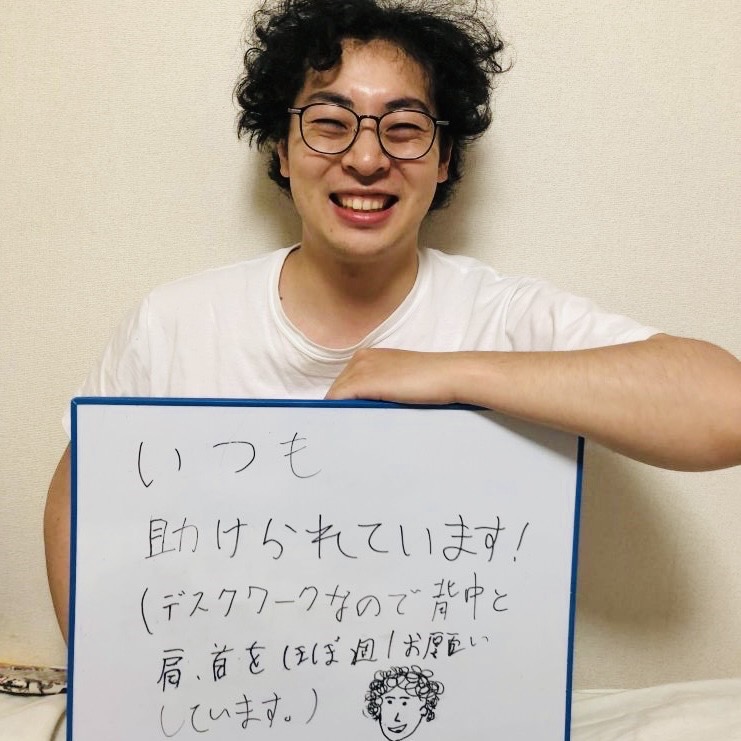 いつも
助けられています!
(デスクワークなので背中と
肩、首をほぼ週1お願い
しています。)